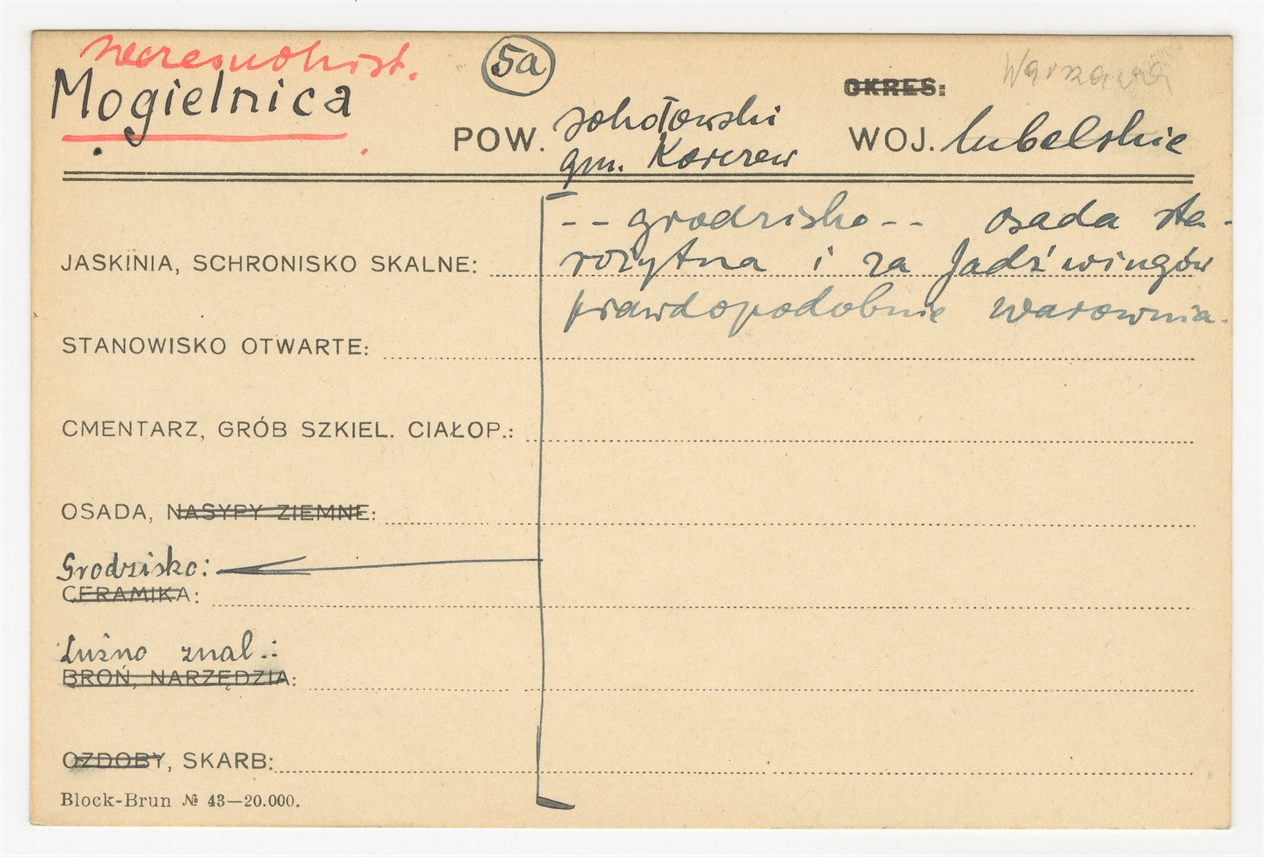 wczesnohist.
Mogielnica
5a
OKRES:
Warszawa
POW. sokołowski
gm. Korczew
WOJ. lubelskie
-- grodzisko -- osada sta-
JASKINIA, SCHRONISKO SKALNE: rożytna i za Jadźwingów
prawdopodobnie warownia.
STANOWISKO OTWARTE:
CMENTARZ, GRÓB SZKIEL. CIAŁOP.:
OSADA, NASYPY ZIEMNE:
Grodzisko:
CERAMIKA:
Luźno znal.:
BROŃ, NARZĘDZIA:
OZDOBY, SKARB:
Block-Brun № 43—20.000.